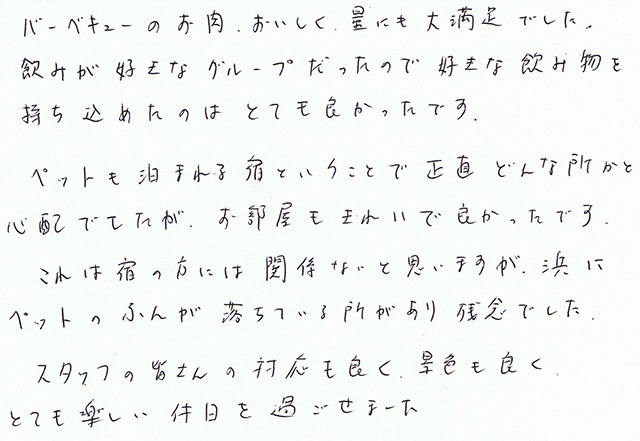 バーベキューのお肉、おいしく、量にも大満足でした。
飲みが好きなグループだったので好きな飲み物を
持ち込めたのはとても良かったです。
ペットも泊まれる宿ということで正直どんな所かと
心配でしたが、お部屋もきれいで良かったです。
これは宿の方には関係ないと思いますが、浜に
ペットのふんが落ちている所があり残念でした。
スタッフの皆さんの対応も良く、景色も良く、
とても楽しい休日を過ごせました